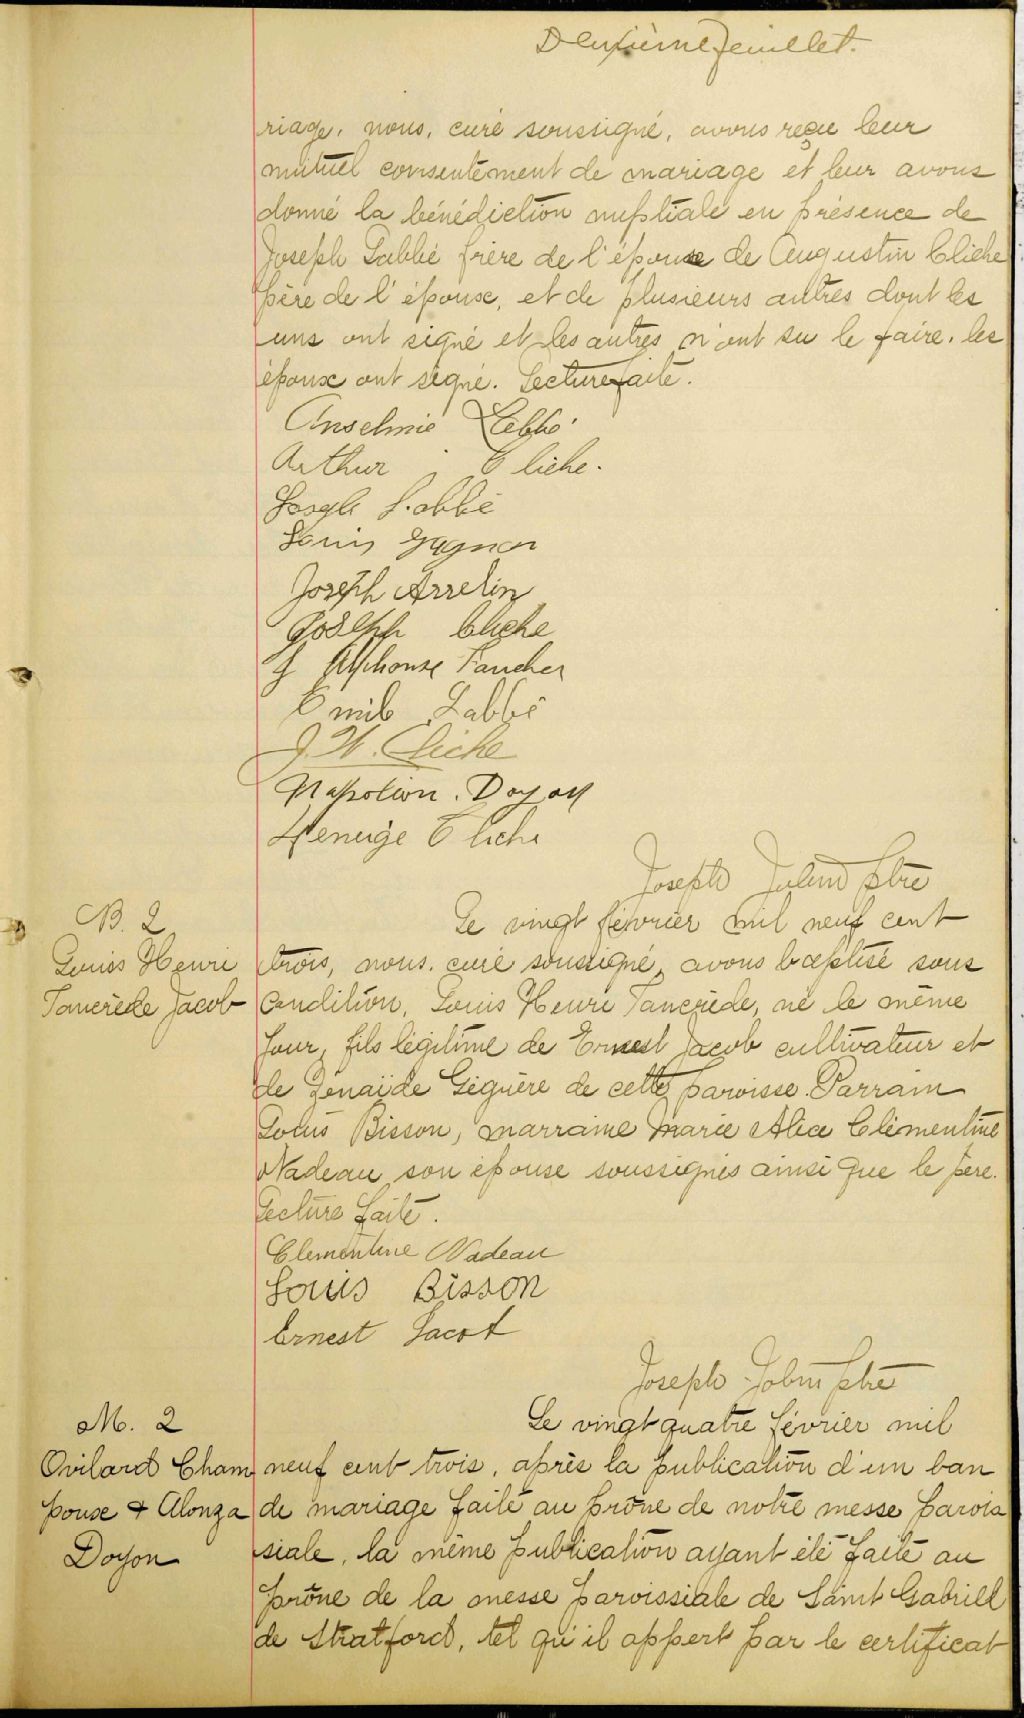 Deuxième feuillet.
riage, nous, curé soussigné, avons reçu leur
mutuel consentement de mariage et leur avons
donné la bénédiction nuptiale en présence de
Joseph Labbé frère de l'épouse de Augustin Cliche
père de l'épouse, et de plusieurs autres dont les
uns ont signé et les autres n'ont su le faire. les
époux ont signé. Lecture faite.
Anselmie Labbé
Arthur Cliche.
Joseph Labbé
Louis Gagnon
Joseph Asselin
Joseph Cliche
J Alphonse Faucher
Emile Labbé
J. W. Cliche
Napoleon. Doyon
Cliche
Joseph Jolin ptre
B. 2
Louis Henri
Tancrède Jacob
Le vingt février mil neuf cent
trois, nous, curé soussigné, avons baptisé sous
condition, Louis Henri Tancrède, né le même
jour, fils légitime de Ernest Jacob cultivateur et
de Zénaïde Giguère de cette paroisse. Parrain
Louis Bisson, marraine Marie Alice Clémentine
Nadeau son épouse soussignés ainsi que le père.
Lecture faite.
Clementine Nadeau
Louis Bisson
Ernest Jacob
Joseph Jolin ptre
M. 2
Ovilard Cham
poux & Alonza
Doyon
Le vingt quatre février mil
neuf cent trois, après la publication d'un ban
de mariage faite au prône de notre messe parois
siale, la même publication ayant été faite au
prône de la messe paroissiale de Saint Gabriel
de Stratford, tel qu'il appert par le certificat